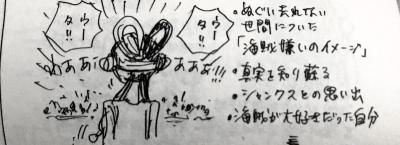 ウータ!!
ウータ!!
わあああ!
わあああ!!!
・ぬぐい去れない
世間についた
「海賊嫌いのイメージ」
・真実を知り蘇る
・シャンクスとの思い出
・海賊が大好きだった自分